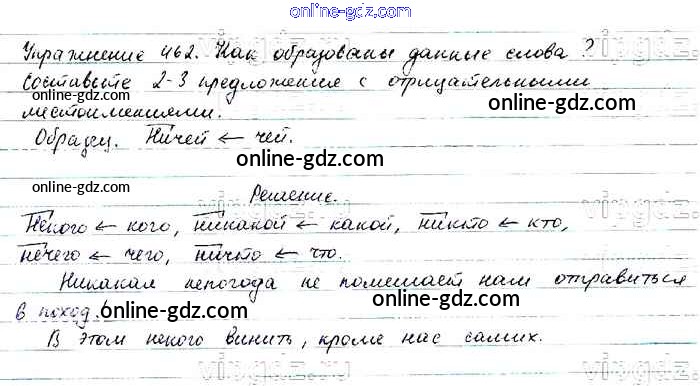 online-gdz.com
Упражнение 462. Как образованы данные слова?
Составьте 2-3 предложения с отрицательными
online-gdz.com online-gdz.com
местоимениями.
Образец. Ничей ← чей.
online-gdz.com
online-gdz.com
Решение.
vipgdz.ru
Некого ← кого, никакой ← какой, никто ← кто,
online-gdz.com online-gdz.com
нечего ← чего, ничто ← что.
Никакая непогода не помешает нам отправиться
в поход.
online-gdz.com online-gdz.com
В этом некого винить, кроме нас самих.
vipgdz.ru